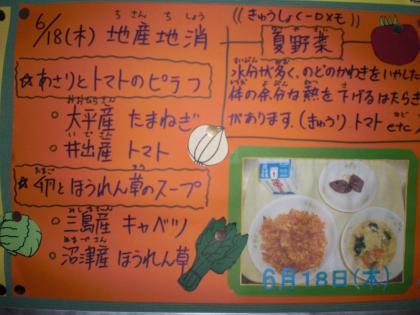 6/18(木) 地産地消
ち さん ち しょう
☆あさりとトマトのピラフ
○ 大平産 たまねぎ
○ 井出産 トマト
いで さん
☆卵とほうれん草のスープ
たまご そう
○ 三島産 キャベツ
みしま さん
○ 沼津産 ほうれん草
ぬまづ さん
((きゅうしょく
夏野菜
水分が多く、のどのかわきをいやし
体の余分な熱を下げるはたらき
があります。(きゅうり、トマト etc
6月18日(木)